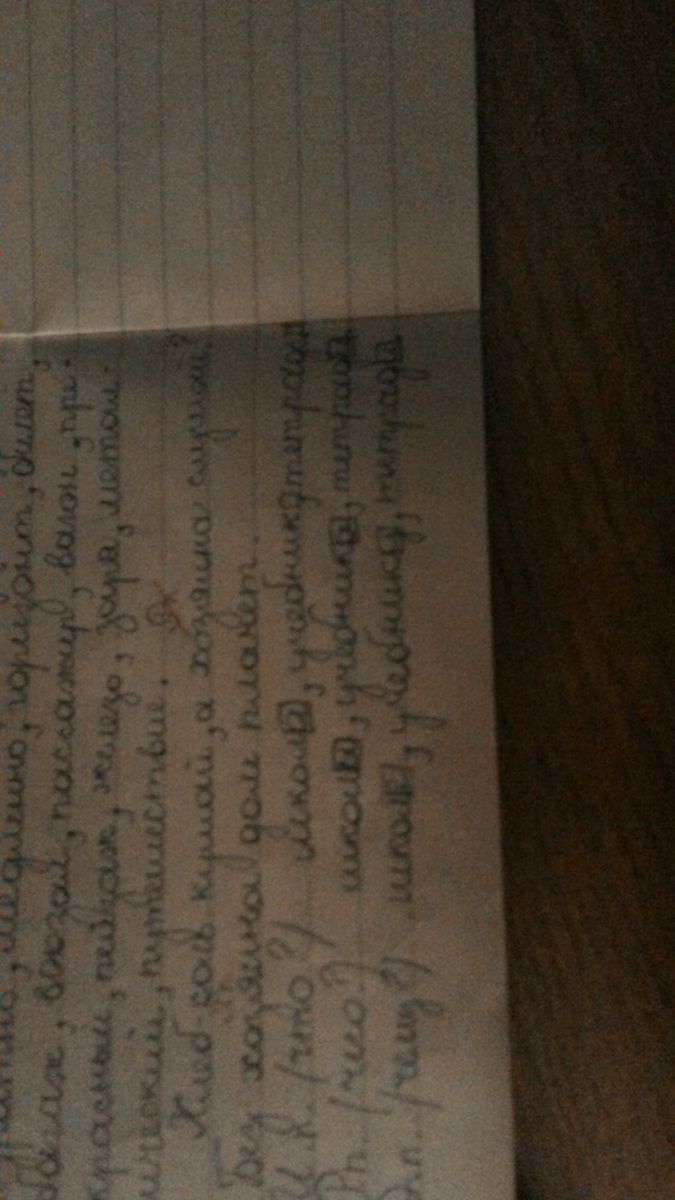 медленно, горизонт, билет,
багаж, вокзал, пассажир, вагон, пре-
красный, пейзаж, железо, заря, металл-
ический, путешествие.
Хлеб-соль кушай, а хозяина слушай?
Без хозяина дом плачет.
И.п. (что?) школа, учебник, тетрадь
Р.п. (чего?) школы, учебника, тетради
Д.п. (чему?) школе, учебнику, тетради